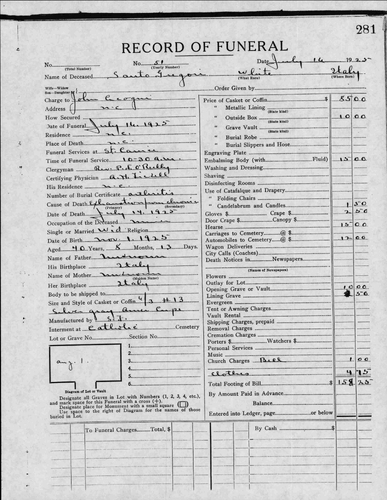 281
RECORD OF FUNERAL
No. No. 51 Date July 16 1925
(Total Number) (Yearly Number)
Name of Deceased Santo White Italy
(What Race) (Where Born)
Wife—Widow
Son—Daughter of Order Given by
Charge to John
Address n.c.
How Secured
Date of Funeral July 16, 1925
Residence n.c.
Place of Death n.c.
Funeral Services at St.
Time of Funeral Service 10-30 a.m.
Clergyman Rev. P. E. O'Reilly
Certifying Physician
His Residence n.c.
Number of Burial Certificate arthritis
Cause of Death Exhaustion from chronic
Date of Death July 14, 1925
Occupation of the Deceased Miner
Single or Married Wid Religion
Date of Birth Nov. 1, 1925
Aged 40 Years 8 Months 13 Days
Name of Father Unknown
His Birthplace Italy
Name of Mother Unknown
Her Birthplace Italy
Body to be shipped to
Size and Style of Casket or Coffin 6/3 # 13
Silver gray
Manufactured by
Interment at Catholic Cemetery
Lot or Grave No. Section No.
1.
2.
3.
4.
5.
6.
Diagram of Lot or Vault
Designate all Graves in Lot with Numbers (1, 2, 3, 4, etc.),
and mark space for this Funeral with a cross (+).
Designate place for Monument with a small square
Use space to the right of Diagram for the names of those
buried in Lot.
Price of Casket or Coffin 55 00
" Metallic Lining
" Outside Box 10 00
" Grave Vault
" Burial Robe
Burial Slippers and Hose
Engraving Plate
Embalming Body (with Fluid) 15 00
Washing and Dressing
Shaving
Disinfecting Rooms
Use of Catafalque and Drapery
" Folding Chairs
" Candelabrum and Candles 1 50
Gloves $ Crape $ 2 50
Hearse 15 00
Carriages to Cemetery @ $
Automobiles to Cemetery @ $ 12 00
Wagon Deliveries
City Calls (Coaches)
Death Notices in Newspapers
Flowers
Outlay for Lot
Opening Grave or Vault 10 00
Lining Grave 50
Evergreen
Tent or Awning Charges
Vault Rental
Shipping Charges, prepaid
Removal Charges
Cremation Charges
Porters $ Watchers $
Personal Services
Music
Church Charges Bell 1 00
Clothes
Total Footing of Bill 158 25
By Amount Paid in Advance
Balance
Entered into Ledger, page or below
To Funeral Charges. Total, $ By Cash $